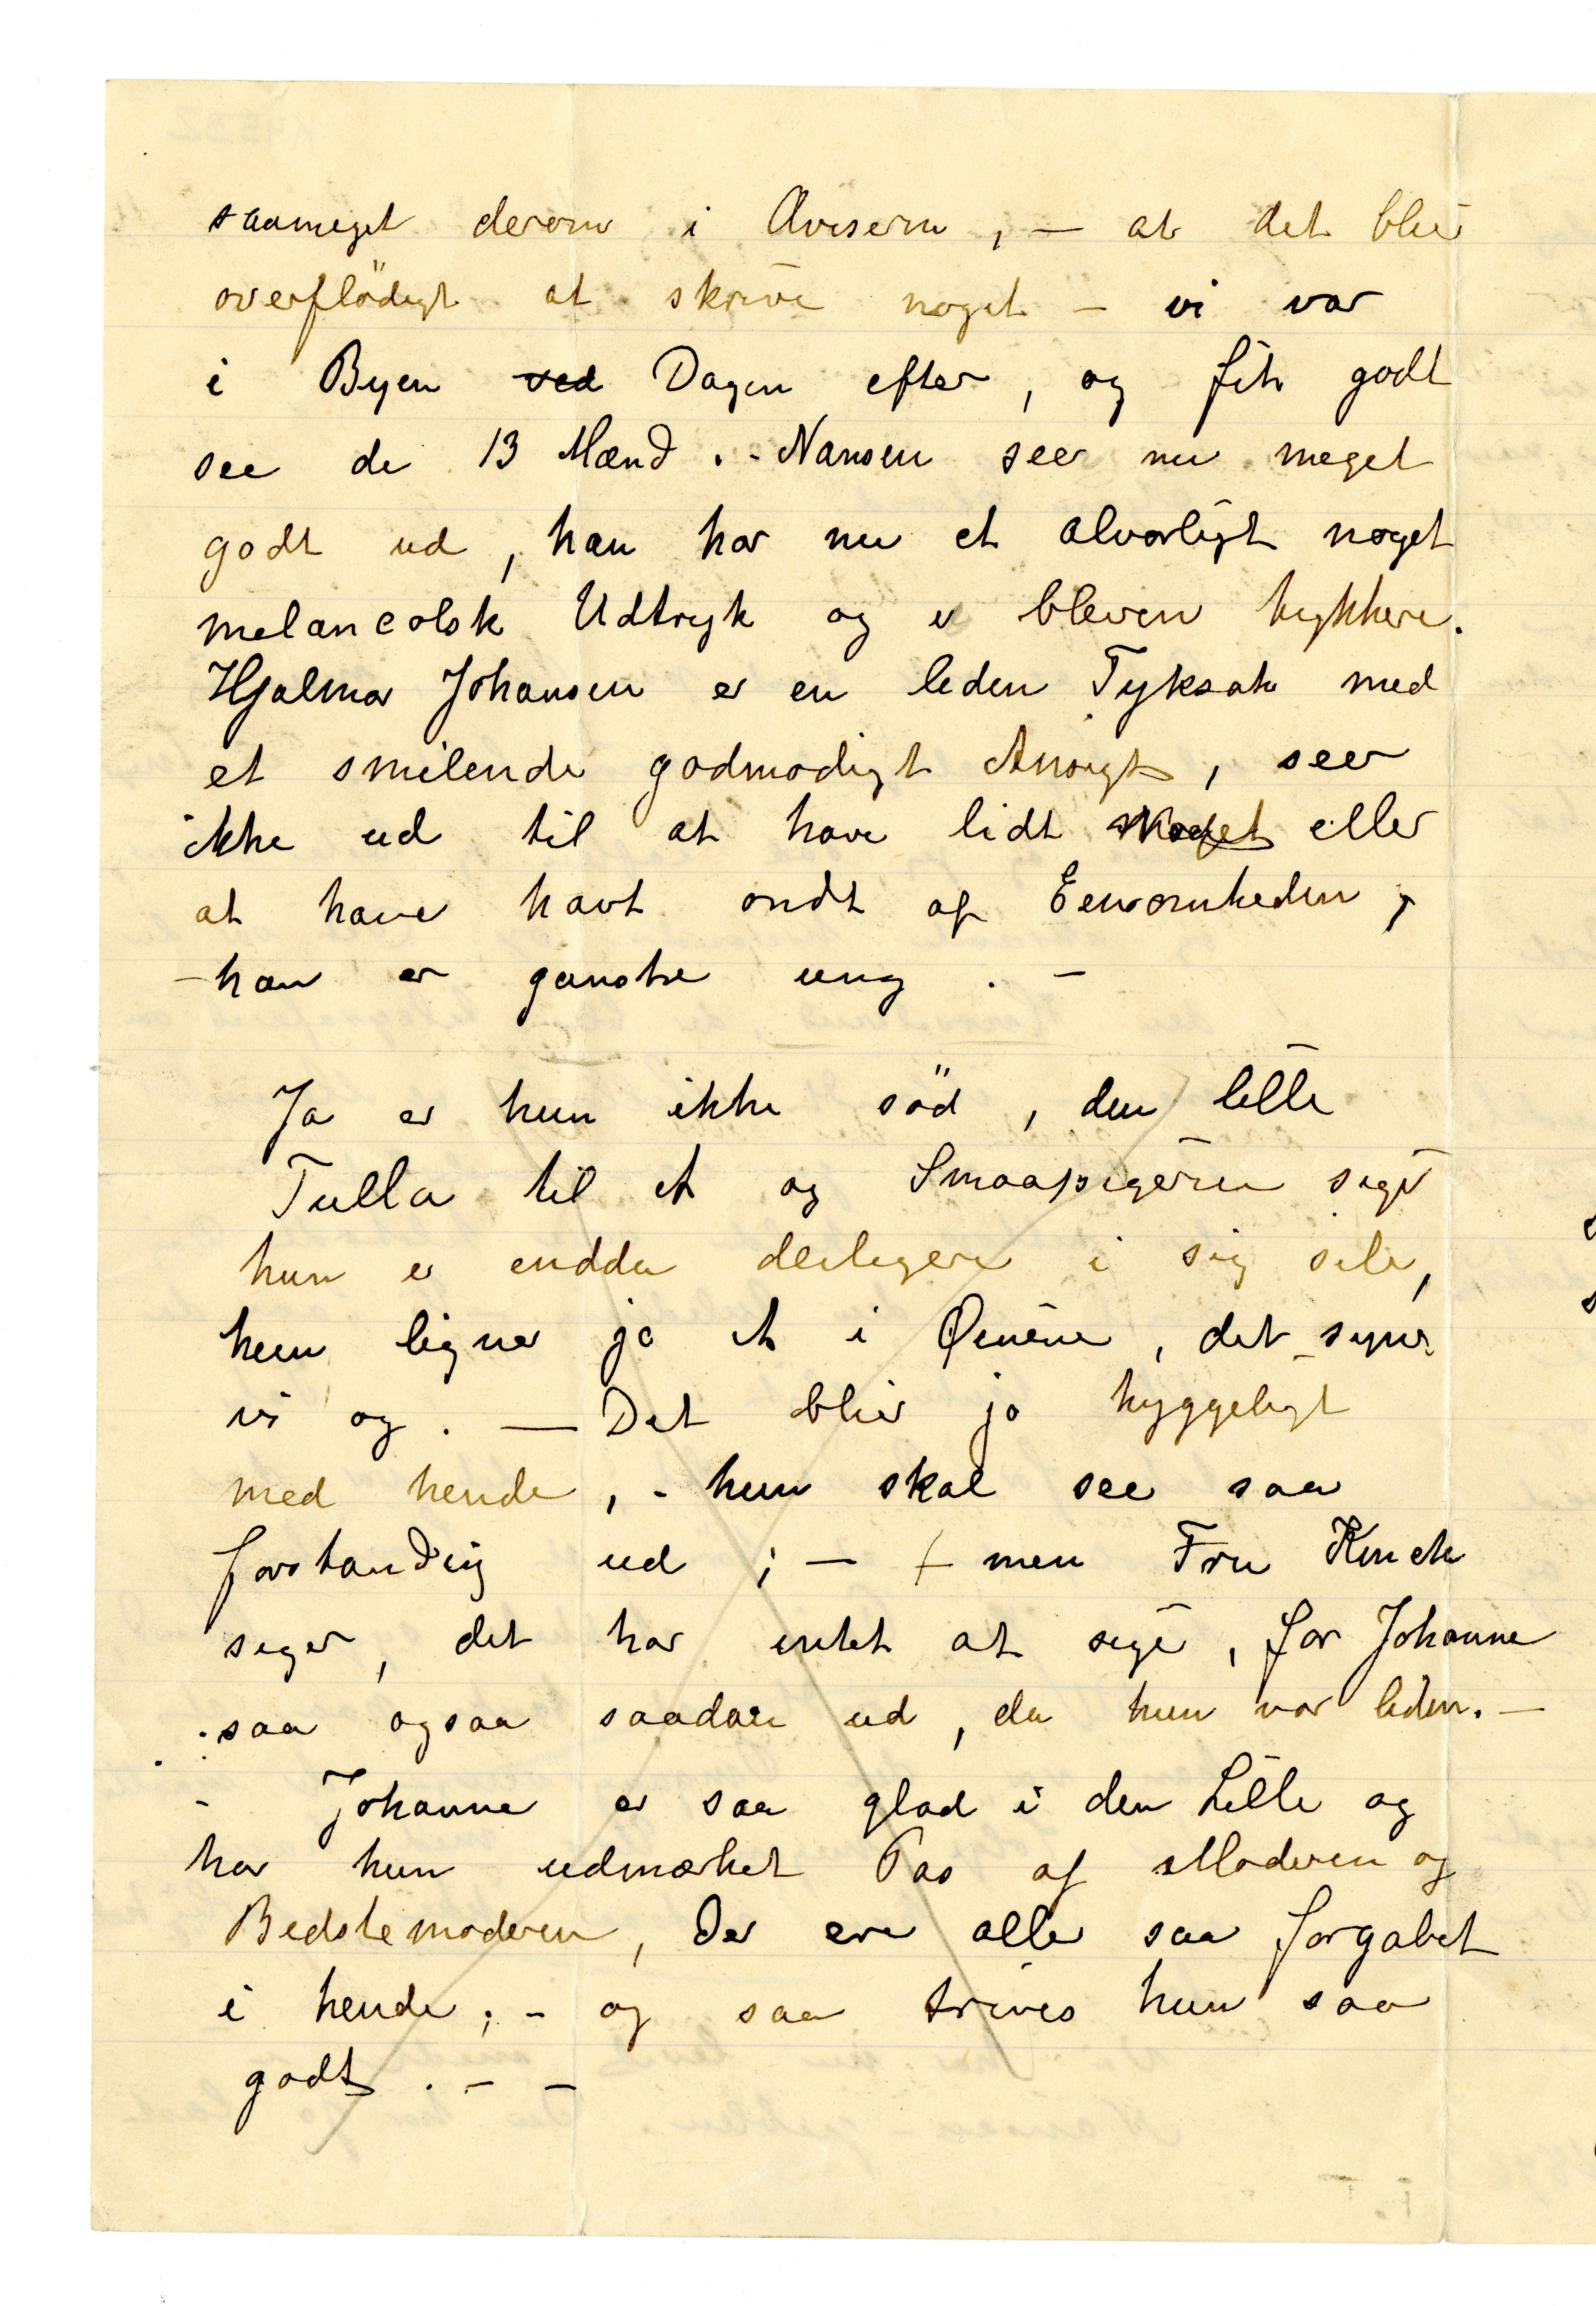 saameget derom i Aviserne, — at det blir
overflödigt at skrive noget — vi var
i Byen ved Dagen efter, og fik godt
see de 13 Mænd. - Nansen seer nu meget
godt ud, han har nu et alvorligt noget
melancolsk Udtryk og er bleven tykkere.
Hjalmar Johansen er en liden Tyksak med
et smilende godmodigt Ansigt, seer
ikke ud til at have lidt Noget eller
at have havt ondt af Eensomheden,
- han er ganske ung. -
Ja er hun ikke söd, den lille
Tulla til et og Smaapigerne siger
hun er endda deiligere i sig selv,
hun ligner jo et i Øinene, det synes
vi og. — Det blir jo hyggeligt
med hende, - hun skal see saa
forstandig ud; — men Fru Kinck
siger, det har intet at sige, for Johanne
saa ogsaa saadan ud, da hun var liden. —
- Johanne er saa glad i den Lille og
har hun udmærket Pas af Moderen og
Bedstemoderen, Der ere alle saa forgabet
i hende; - og saa trives hun saa
godt. - -